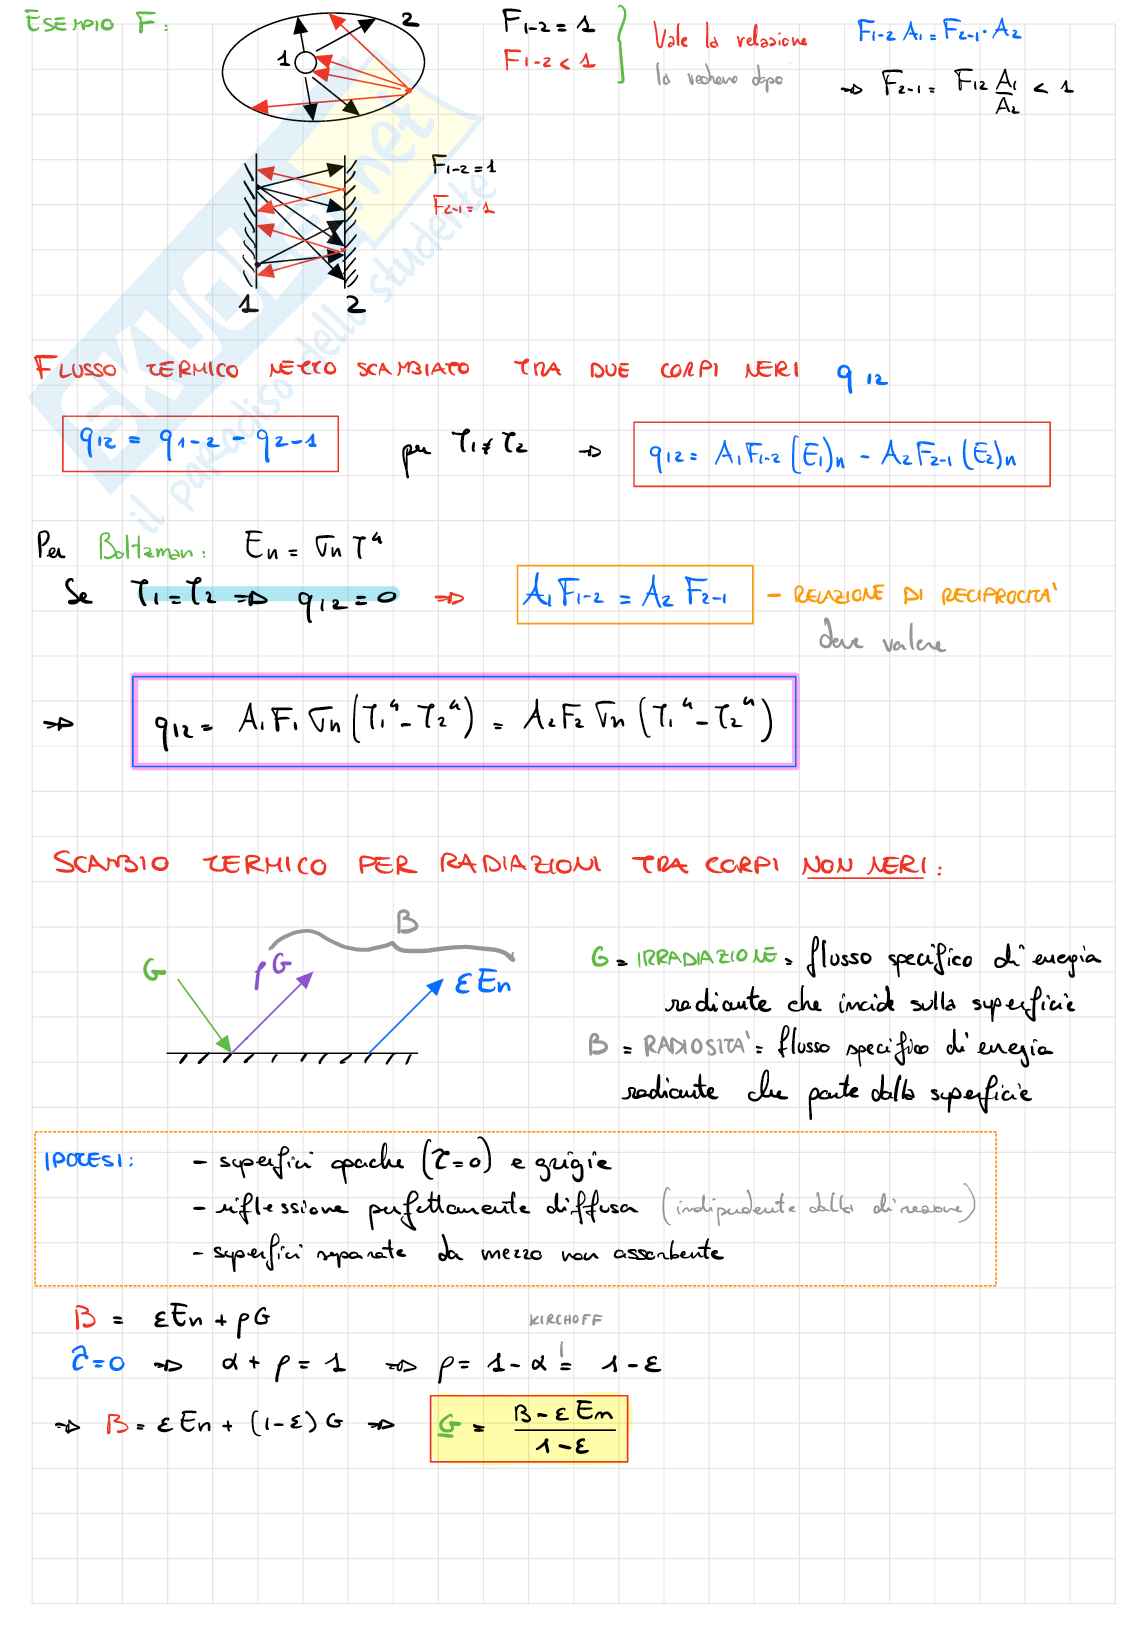 ESEMPIO F:
1
2
F1-2 = 1
F1-2 < 1
Vale la relazione
la vedremo dopo
F1-2 A1 = F2-1 · A2
⇒ F2-1 = F12 A1/A2 < 1
F1-2 = 1
F2-1 = 1
1 2
FLUSSO TERMICO NETTO SCAMBIATO TRA DUE CORPI NERI q12
q12 = q1-2 - q2-1
per T1 ≠ T2 ⇒ q12 = A1 F1-2 (E1)n - A2 F2-1 (E2)n
Per Boltzman: En = σn T⁴
Se T1 = T2 ⇒ q12 = 0 ⇒ A1 F1-2 = A2 F2-1 - RELAZIONE DI RECIPROCITA'
deve valere
⇒ q12 = A1 F1 σn (T1⁴ - T2⁴) = A2 F2 σn (T1⁴ - T2⁴)
SCAMBIO TERMICO PER RADIAZIONI TRA CORPI NON NERI:
B
G ρG εEn
G = IRRADIAZIONE = flusso specifico di energia
radiante che incide sulla superficie
B = RADIOSITA' = flusso specifico di energia
radiante che parte dalla superficie
IPOTESI: - superfici opache (τ=0) e grigie
- riflessione perfettamente diffusa (indipendente dalla direzione)
- superfici separate da mezzo non assorbente
B = εEn + ρG
KIRCHOFF
τ=0 ⇒ α + ρ = 1 ⇒ ρ = 1 - α = 1 - ε
⇒ B = εEn + (1-ε) G ⇒ G = (B - εEn)/(1 - ε)
SKUOLA.net
il paradiso dello studente